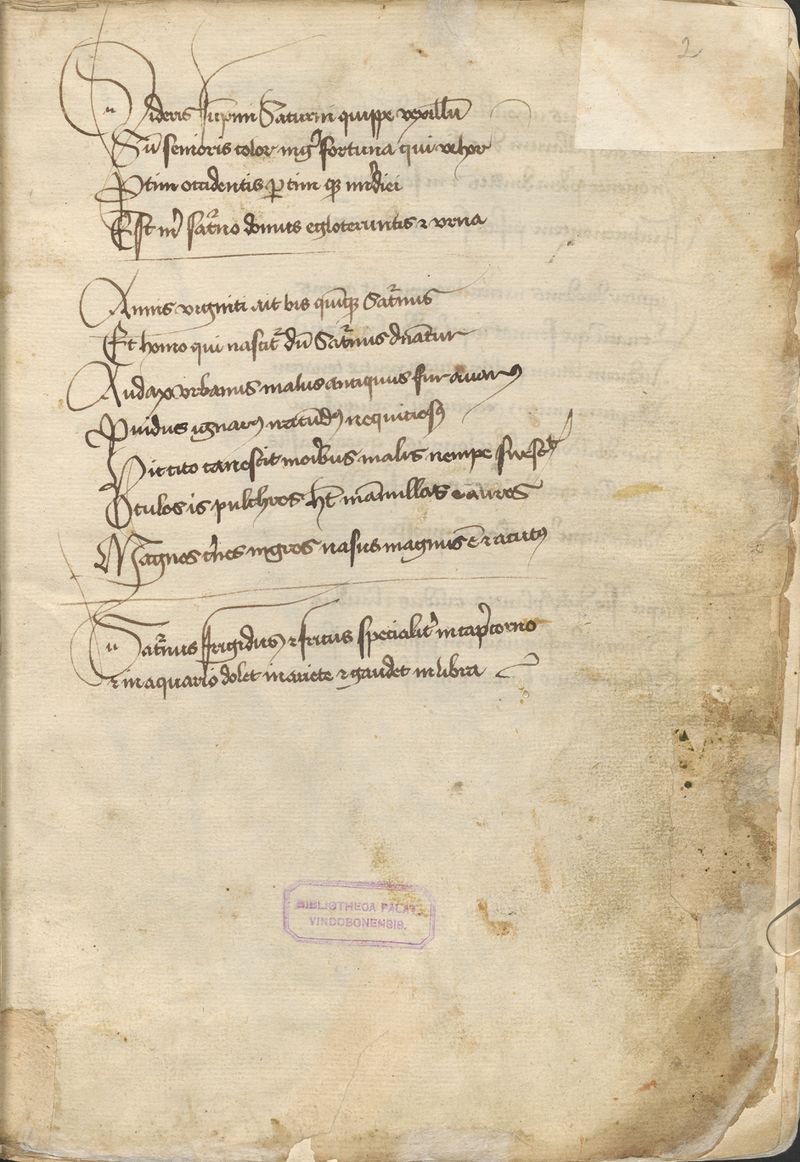 2
Sideris supmi Saturni quippe vexillu
Su senioris color nigr fortuna qui vehor
Ptim occidentis ptim qz meridiei
Est mi satno domus egloteruntis et vrna
Annis viginti ait bis quinqz Satnus
Et homo qui nascit du Satnus dnatur
Audax vrbanus malus antiquus fur avarus
Pfidus ignarus iracundus nequitiosus
Hic cito canescit moribus malis nempe
Oculos is pulchros ht mamillas aures
Magnos nigros nasus magnus e et acutus
Saturnus frigidus et siccus specialiter in capricorno
et in aquario dolet in ariete et gaudet in libra
BIBLIOTHECA PALAT.
VINDOBONENSIS.